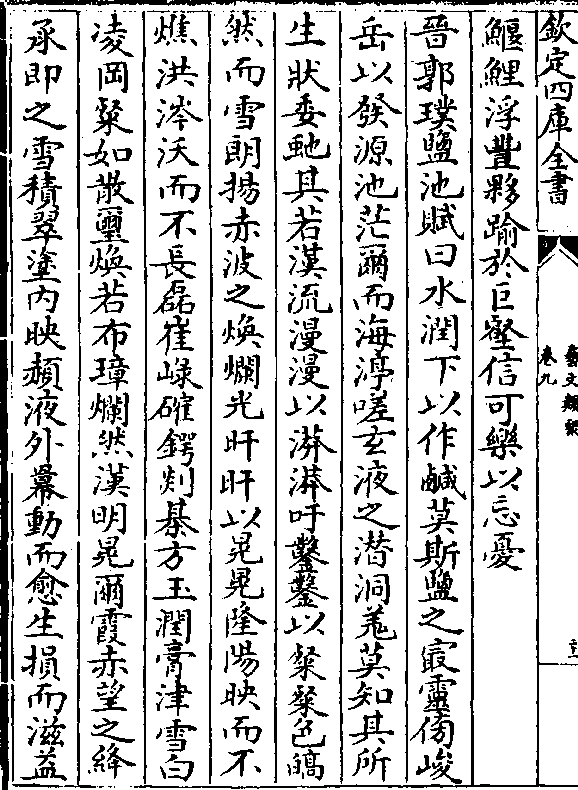 欽定四庫全書
藝文類聚
卷九
鰋鯉浮豐夥踰於巨壑信可樂以忘憂
晉郭璞鹽池賦曰水潤下以作鹹莫斯鹽之㝡靈傍峻
岳以發源池茫爾而海渟嗟玄液之潜洞羌莫知其所
生狀委虵其若漢流漫漫以漭漭吁鑿鑿以粲粲色皜
然而雪朗揚赤波之煥爛光旰旰以晃晃隆陽映而不
燋洪涔沃而不長磊崔嵘碓鍔剡棊方玉潤膏津雪白
凌岡粲如散璽煥若布璋爛然漢明晃爾霞赤望之絳
承即之雪積翠塗内映頳液外羃動而愈生損而滋益